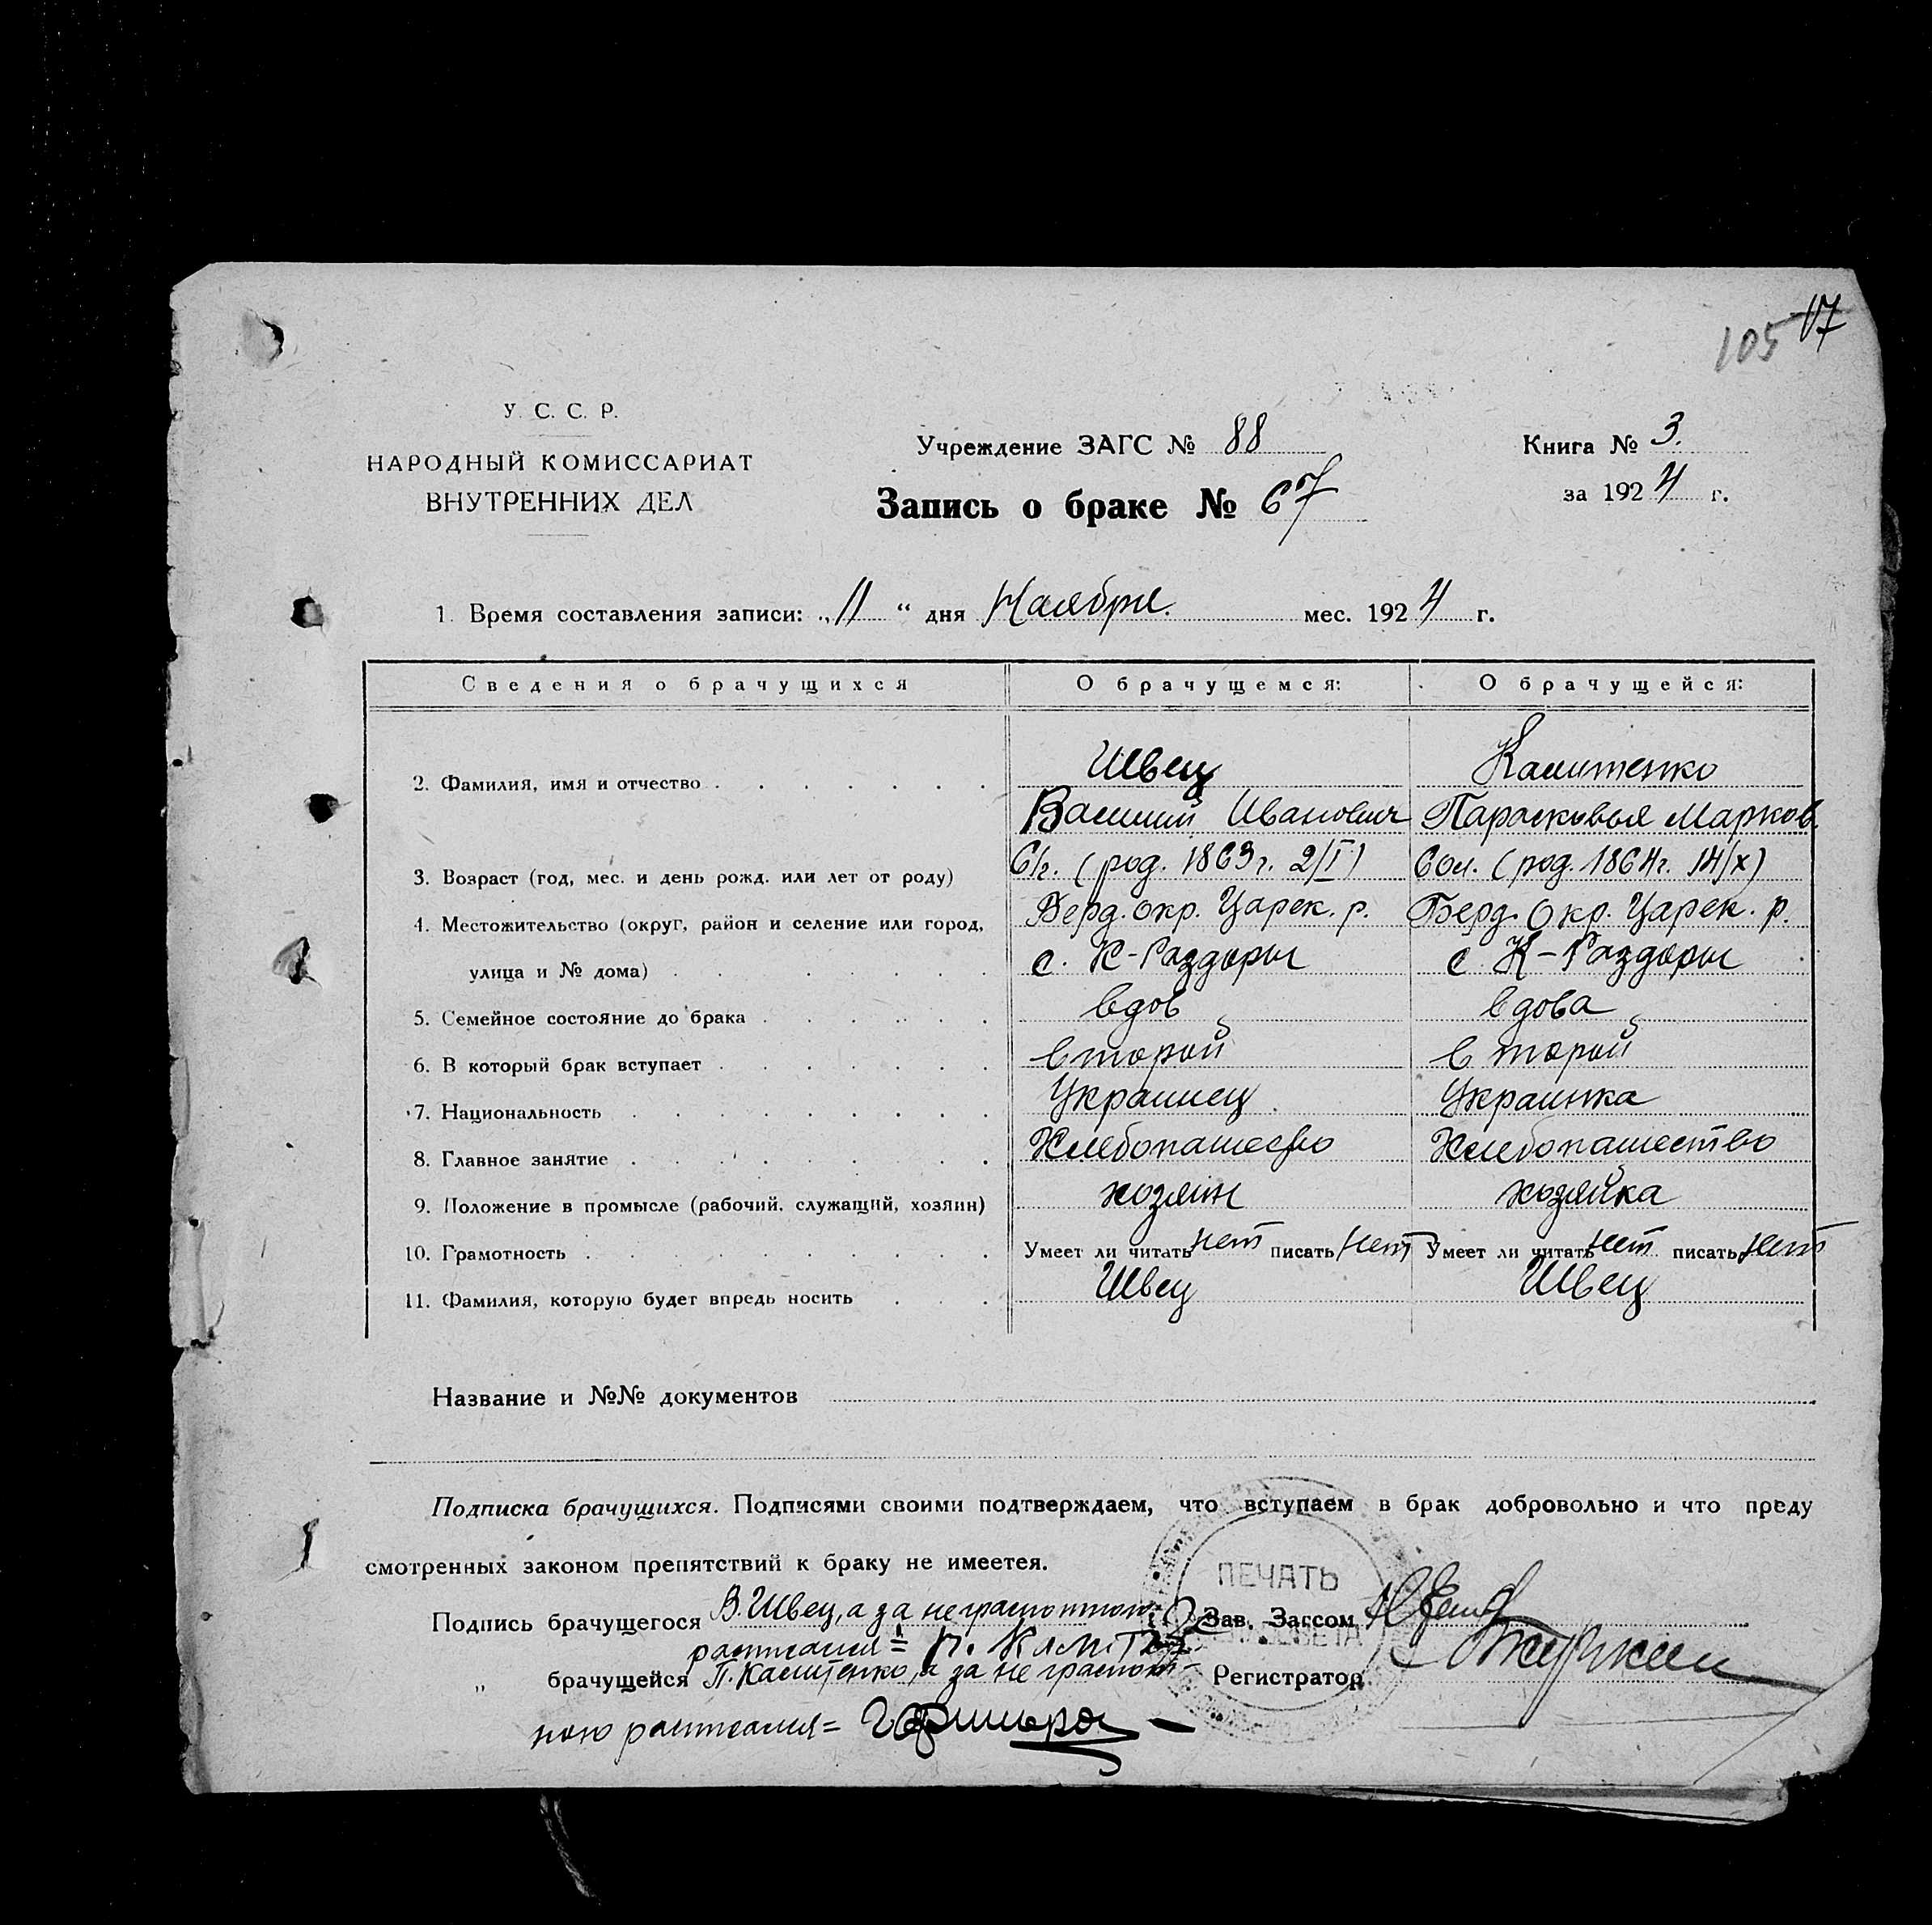 105 17
У. С. С. Р.
НАРОДНЫЙ КОМИССАРИАТ
ВНУТРЕННИХ ДЕЛ
Учреждение ЗАГС № 88
Запись о браке № 67
Книга № 3.
за 1924 г.
1. Время составления записи: „11“ дня Ноября. мес. 1924 г.
Сведения о брачущихся О брачущемся: О брачущейся:
2. Фамилия, имя и отчество Швец Калитенко
Василий Иванович Парасковья Марков.
3. Возраст (год, мес. и день рожд. или лет от роду) 61г. (род. 1863г. 2/I) 60л. (род. 1864г. 14/X)
4. Местожительство (округ, район и селение или город, Берд. окр. Царек. р. Берд. Окр. Царек. р.
улица и № дома) с. К-Раздоры с К-Раздоры
5. Семейное состояние до брака вдов вдова
6. В который брак вступает второй второй
7. Национальность Украинец Украинка
8. Главное занятие Хлебопашество Хлебопашество
9. Положение в промысле (рабочий, служащий, хозяин) хозяин хозяйка
10. Грамотность Умеет ли читать нет писать нет Умеет ли читать нет писать нет
11. Фамилия, которую будет впредь носить Швец Швец
Название и №№ документов
Подписка брачущихся. Подписями своими подтверждаем, что вступаем в брак добровольно и что преду
смотренных законом препятствий к браку не имеется.
ПЕЧАТЬ
Подпись брачущегося В. Швец, а за неграмотного Зав. Загсом
расписался= П.
„ брачущейся П. Калитенко, а за не грамот- Регистратор
ною расписался=